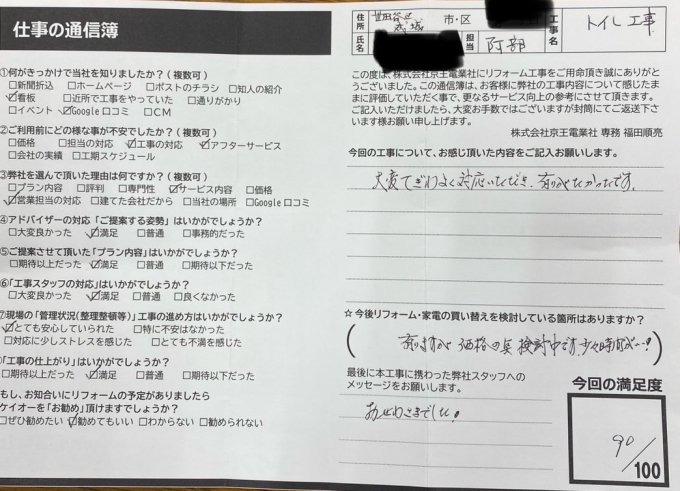 仕事の通信簿
①何がきっかけで当社を知りましたか？(複数可)
□新聞折込　□ホームページ　□ポストのチラシ　□知人の紹介
☑看板　□近所で工事をやっていた　□通りがかり
□イベント　☑Google口コミ　□CM
②ご利用前にどの様な事が不安でしたか？(複数可)
□価格　□担当の対応　☑工事の対応　☑アフターサービス
□会社の実績　□工期スケジュール
③弊社を選んで頂いた理由は何ですか？(複数可)
□プラン内容　□評判　□専門性　☑サービス内容　□価格
☑営業担当の対応　□建てた会社だから　□当社の場所　□Google口コミ
④アドバイザーの対応「ご提案する姿勢」はいかがでしょうか？
□大変良かった　☑満足　□普通　□事務的だった
⑤ご提案させて頂いた「プラン内容」はいかがでしょうか？
□期待以上だった　☑満足　□普通　□期待以下だった
⑥「工事スタッフの対応」はいかがでしょうか？
□大変良かった　☑満足　□普通　□良くなかった
⑦現場の「管理状況(整理整頓等)」工事の進め方はいかがでしょうか？
☑とても安心していられた　□特に不安はなかった
□対応に少しストレスを感じた　□とても不満を感じた
「工事の仕上がり」はいかがでしょうか？
□期待以上だった　☑満足　□普通　□期待以下だった
もし、お知合いにリフォームの予定がありましたら
ケイオーを「お勧め」頂けますでしょうか？
□ぜひ勧めたい　☑勧めてもいい　□わからない　□勧められない
住所　世田谷区　成城　市・区
氏名　担当　阿部
工事名　トイレ工事
この度は、株式会社京王電業社にリフォーム工事をご用命頂き誠にありがと
うございました。この通信簿は、お客様に弊社の工事内容について感じたま
まに評価していただく事で、更なるサービス向上の参考にさせて頂きます。
ご記入いただけましたら、大変お手数ではございますが封筒にてご返送下さ
います様お願い申し上げます。
株式会社京王電業社 専務 福田順亮
今回の工事について、お感じ頂いた内容をご記入お願いします。
大変てぎわよく対応いただき、有りがたかったです。
☆今後リフォーム・家電の買い替えを検討している箇所はありますか？
(有りますが価格の点 検討中です。)
最後に本工事に携わった弊社スタッフへの
メッセージをお願いします。
おせわさまでした。
今回の満足度
90/100